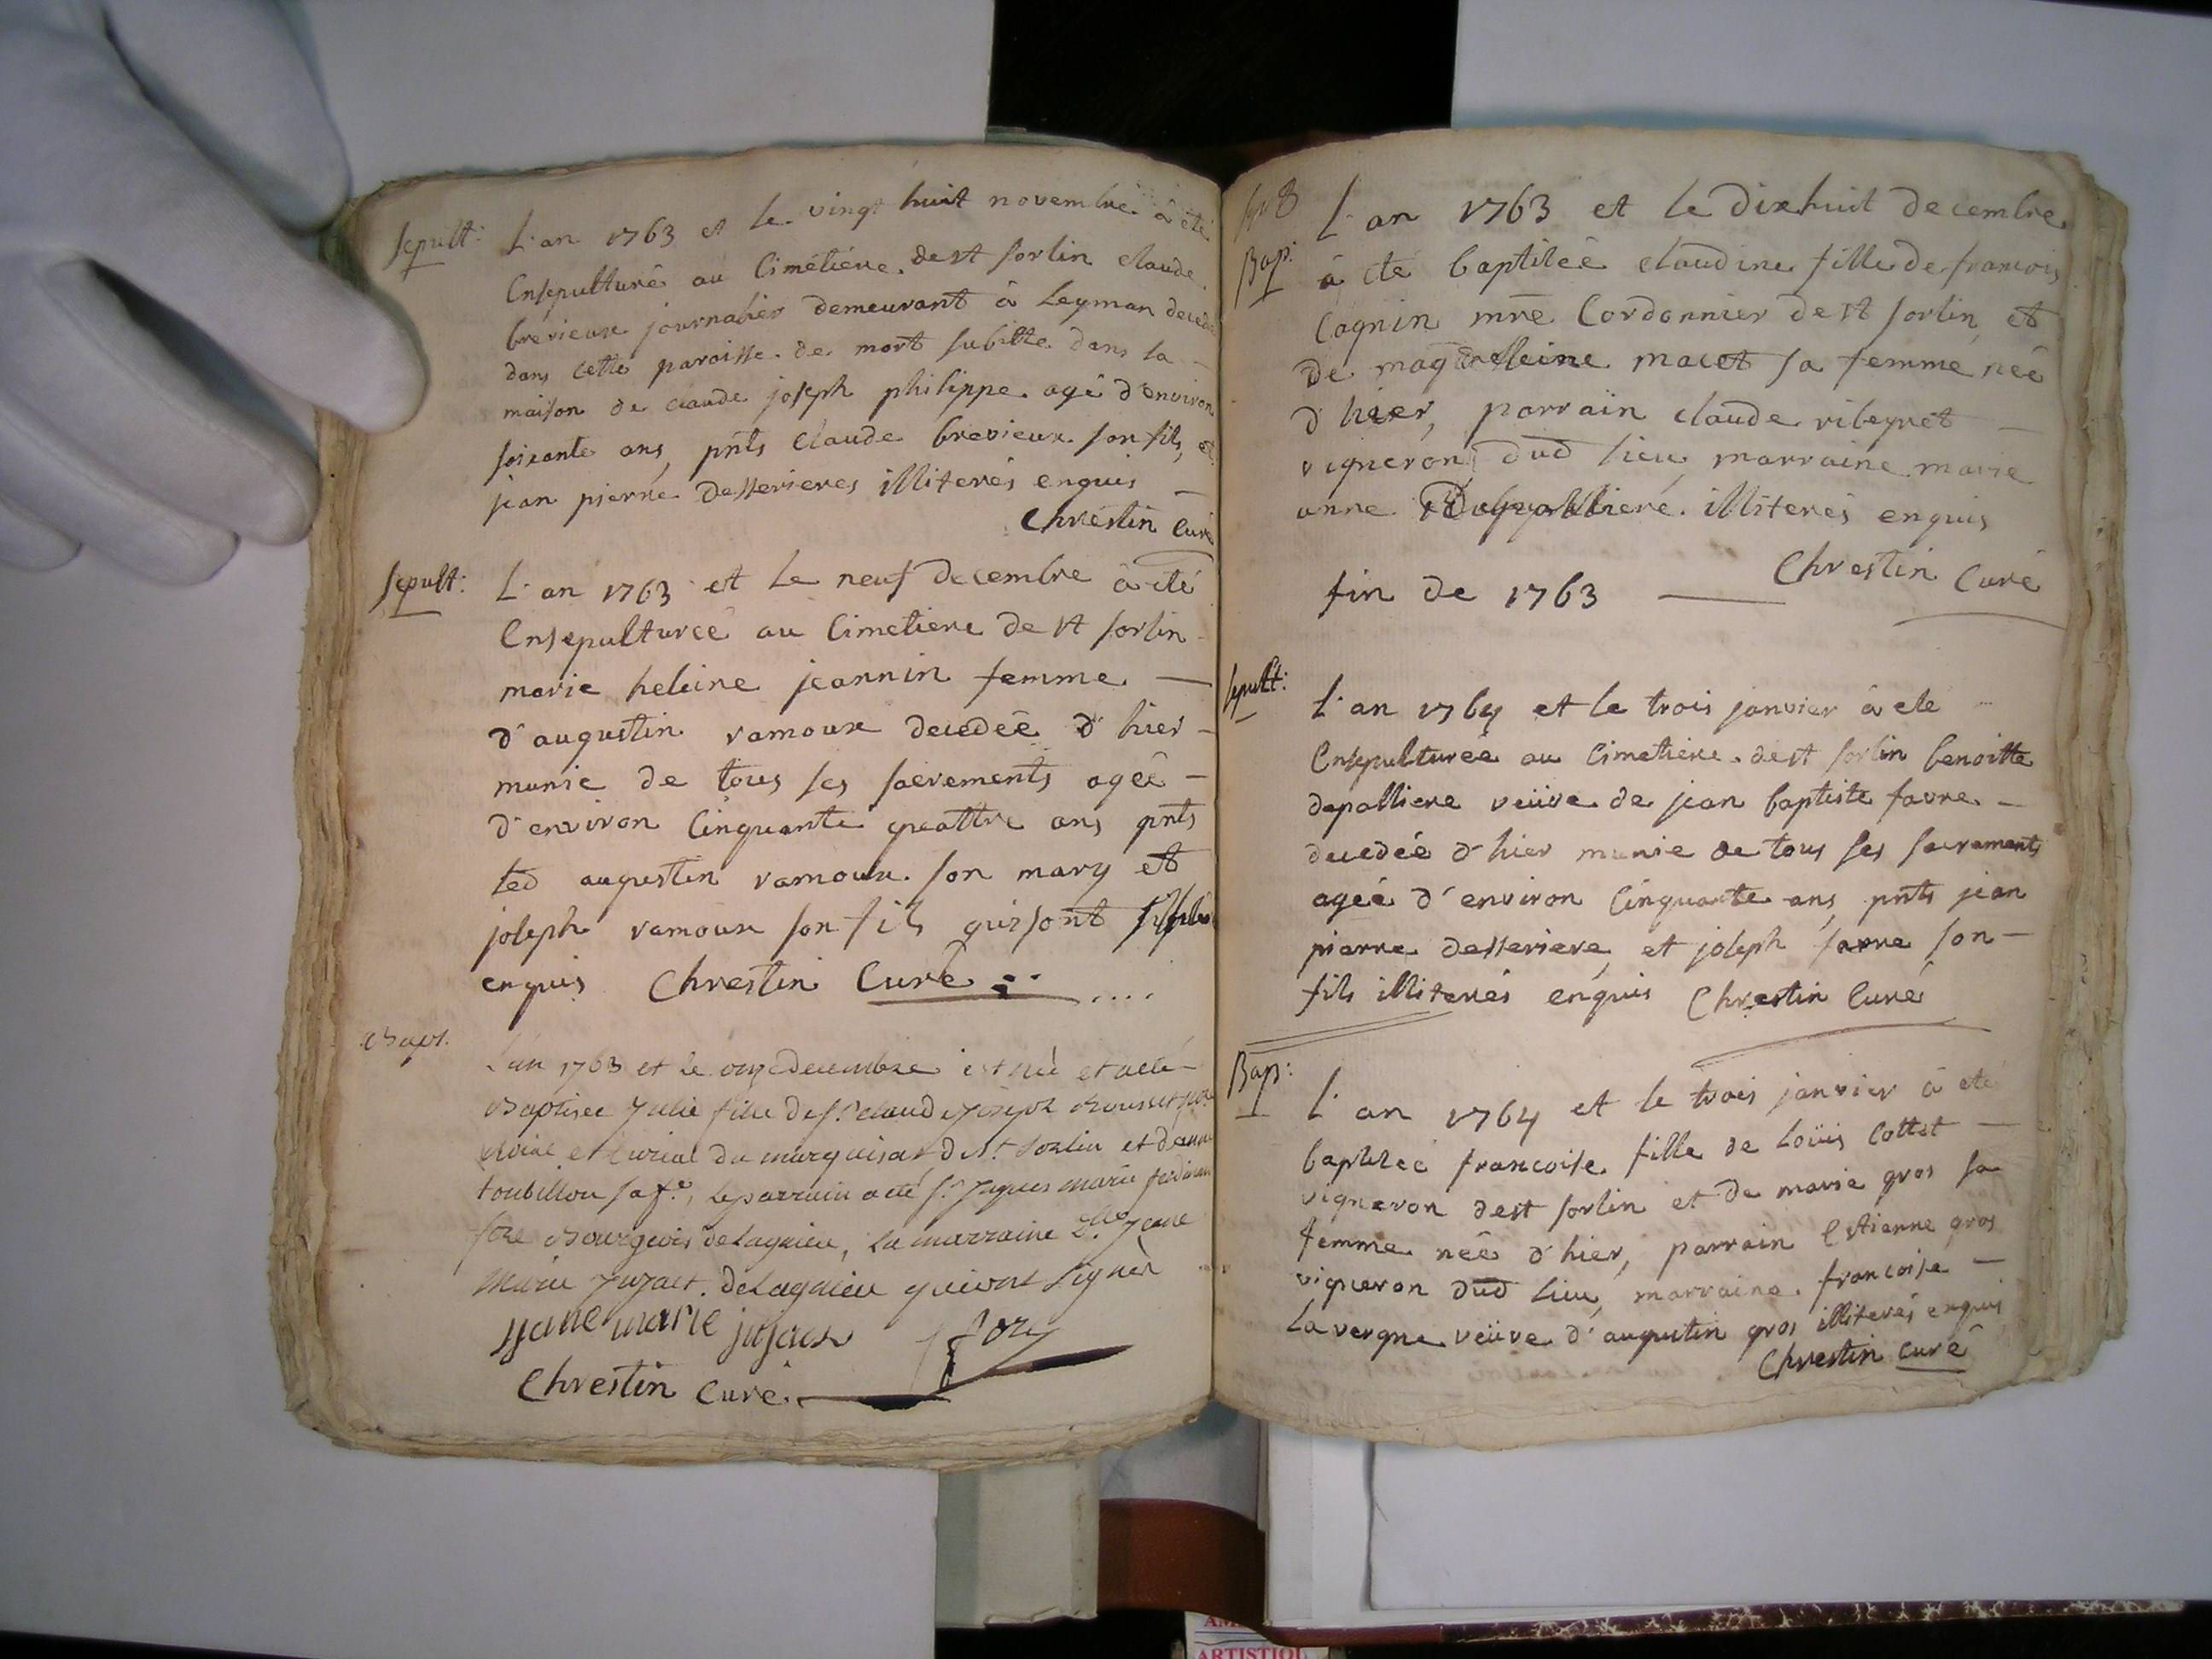 sepult:
L'an 1763 et le vingt huit novembre à été
Ensepulturé au Cimétiére de st sorlin claude
brevieux journalier demeurant à Leyman decedé
dans cette paroisse de mort subitte dans la
maison de claude joseph philippe agé d'environ
soixante ans, pnts claude brevieux son fils, et
jean pierre desserieres illiterés enquis
Chrestin Curé
sepult:
L'an 1763 et Le neuf decembre à été
Ensepultureé au Cimetiere de st sorlin
marie heleine jeannin femme
d'augustin ramoux decedeé d'hier
munie de tous ses sacrements ageé
d'environ Cinquante quattre ans pnts
led augustin ramoux son mary et
joseph ramoux son fils qui sont
enquis Chrestin Curé
Bapt.
L'an 1763 et le onze decembre est neé et a eté
Baptisee Julie fille de sr claude Joseph Rousset
et curial du marquisat de st sorlin et d'anne
toubillon sa fe, le parrain a eté sr Jaques marie
Bourgeois de Lagnieu, La marraine Dlle Jeane
Marie Jujact de Lagnieu qui ont Signér
jjane marie jujact
Chrestin Curé
Bap:
L'an 1763 et le Dixhuit decembre
à été baptiseé claudine fille de francois
Cagnin mre Cordonnier de st sorlin et
de magdelleine macet sa femme neé
d'hier, parrain claude ribeyret
vigneron dud lieu marraine marie
anne illiterés enquis
Chrestin Curé
fin de 1763
sepult:
L'an 1764 et le trois janvier à eté
Ensepultureé au Cimetiere de st sorlin benoitte
depalliere veüve de jean baptiste favre
decedeé d'hier munie de tous ses sacrements
ageé d'environ Cinquante ans, pnts jean
pierre desseriere, et joseph favre son
fils illiterés enquis Chrestin Curé
Bap:
L'an 1764 et le trois janvier à eté
baptiseé francoise fille de Loüis Cottet
vigneron de st sorlin et de marie gros sa
femme neé d'hier, parrain Estienne gros
vigneron dud lieu, marraine francoise
Lavergne veüve d'augustin gros illiterés enquis
Chrestin Curé
AM
ARTISTIQ